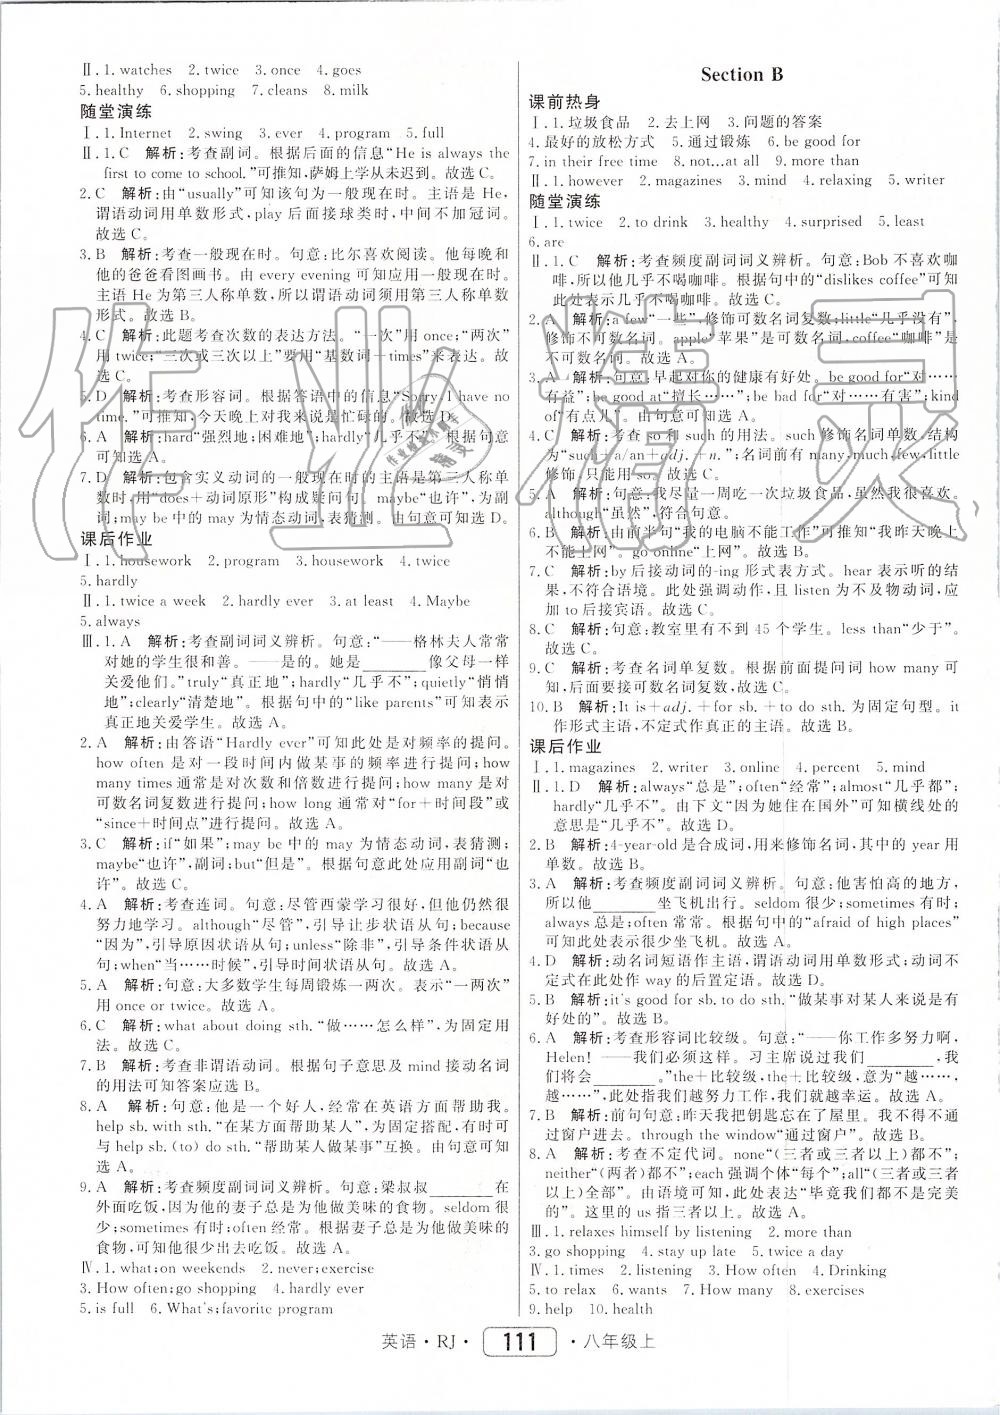 Ⅱ. 1. watches 2. twice 3. once 4. goes
5. healthy 6. shopping 7. cleans 8. milk
随堂演练
Ⅰ. 1. Internet 2. swing 3. ever 4. program 5. full
Ⅱ. 1. C 解析:考查副词。根据后面的信息“He is always the
first to come to school.”可推知,萨姆上学从未迟到。故选C。
2. C 解析:由“usually”可知该句为一般现在时。主语是 He,
谓语动词用单数形式,play 后面接球类时,中间不加冠词。
故选 C。
3. B 解析:考查一般现在时。句意:比尔喜欢阅读。他每晚和
他的爸爸看图画书。由 every evening 可知应用一般现在时。
主语 He 为第三人称单数,所以谓语动词须用第三人称单数
形式。故选 B。
4. C 解析:此题考查次数的表达方法。“一次”用 once;“两次”
用 twice;“三次或三次以上”要用“基数词+times”来表达。故
选 C。
5. D 解析:考查形容词。根据答语中的信息“Sorry,I have no
time.”可推知,今天晚上对我来说是忙碌的。故选 D。
6. A 解析:hard“强烈地;困难地”;hardly“几乎不”。根据句意
可知选 A。
7. D 解析:包含实义动词的一般现在时的主语是第三人称单
数时,用“does+动词原形”构成疑问句。maybe“也许”,为副
词;may be 中的 may 为情态动词,表猜测。由句意可知选 D。
课后作业
Ⅰ. 1. housework 2. program 3. housework 4. twice
5. hardly
Ⅱ. 1. twice a week 2. hardly ever 3. at least 4. Maybe
5. always
Ⅲ. 1. A 解析:考查副词词义辨析。句意:“——格林夫人常常
对她的学生很和善。——是的。她是________像父母一样
关爱他们。”truly“真正地”;hardly“几乎不”;quietly“悄悄
地”;clearly“清楚地”。根据句中的“like parents”可知表示
真正地关爱学生。故选 A。
2. A 解析:由答语“Hardly ever”可知此处是对频率的提问。
how often 是对一段时间内做某事的频率进行提问;how
many times 通常是对次数和倍数进行提问;how many 是对
可数名词复数进行提问;how long 通常对“for+时间段”或
“since+时间点”进行提问。故选 A。
3. C 解析:if“如果”;may be 中的 may 为情态动词,表猜测;
maybe“也许”,副词;but“但是”。根据句意此处应用副词“也
许”。故选 C。
4. A 解析:考查连词。句意:尽管西蒙学习很好,但他仍然很
努力地学习。although“尽管”,引导让步状语从句;because
“因为”,引导原因状语从句;unless“除非”,引导条件状语从
句;when“当……时候”,引导时间状语从句。故选 A。
5. A 解析:句意:大多数学生每周锻炼一两次。表示“一两次”
用 once or twice。故选 A。
6. C 解析:what about doing sth.“做……怎么样”,为固定用
法。故选 C。
7. B 解析:考查非谓语动词。根据句子意思及 mind 接动名词
的用法可知答案应选 B。
8. A 解析:句意:他是一个好人,经常在英语方面帮助我。
help sb. with sth.“在某方面帮助某人”,为固定搭配,有时可
与 help sb. (to) do sth.“帮助某人做某事”互换。由句意可知
选 A。
9. A 解析:考查频度副词词义辨析。句意:梁叔叔________在
外面吃饭,因为他的妻子总是为他做美味的食物。seldom 很
少;sometimes 有时;often 经常。根据妻子总是为他做美味的
食物,可知他很少出去吃饭。故选 A。
Ⅳ. 1. what;on weekends 2. never;exercise
3. How often;go shopping 4. hardly ever
5. is full 6. What's;favorite program
Section B
课前热身
Ⅰ. 1. 垃圾食品 2. 去上网 3. 问题的答案
4. 最好的放松方式 5. 通过锻炼 6. be good for
7. in their free time 8. not...at all 9. more than
Ⅱ. 1. however 2. magazines 3. mind 4. relaxing 5. writer
随堂演练
Ⅰ. 1. twice 2. to drink 3. healthy 4. surprised 5. least
6. are
Ⅱ. 1. C 解析:考查频度副词词义辨析。句意:Bob 不喜欢咖
啡,所以他几乎不喝咖啡。根据句中的“dislikes coffee”可知
此处表示几乎不喝咖啡。故选 C。
2. A 解析:a few“一些”,修饰可数名词复数;little“几乎没有”,
修饰不可数名词。apple“苹果”是可数名词,coffee“咖啡”是
不可数名词。故选 A。
3. A 解析:句意:早起对你的健康有好处。be good for“对……
有益”;be good at“擅长……”;be bad for“对……有害”;kind
of“有点儿”。由句意可知选 A。
4. C 解析:考查 so 和 such 的用法。such 修饰名词单数,结构
为“such+a/an+adj.+n.”;名词前有 many,much,few,little
修饰,只能用 so。故选 C。
5. A 解析:句意:我尽量一周吃一次垃圾食品,虽然我很喜欢。
although“虽然”,符合句意。
6. B 解析:由前半句“我的电脑不能工作”可推知“我昨天晚上
不能上网”。go online“上网”。故选 B。
7. C 解析:by 后接动词的-ing 形式表方式。hear 表示听的结
果,不符合语境。此处强调动作,且 listen 为不及物动词,应
加 to 后接宾语。故选 C。
8. C 解析:句意:教室里有不到 45 个学生。less than“少于”。
故选 C。
9. C 解析:考查名词单复数。根据前面提问词 how many 可
知,后面要接可数名词复数,故选 C。
10. B 解析:It is+adj.+for sb.+to do sth. 为固定句型。it
作形式主语,不定式作真正的主语。故选 B。
课后作业
Ⅰ. 1. magazines 2. writer 3. online 4. percent 5. mind
Ⅱ. 1. D 解析:always“总是”;often“经常”;almost“几乎都”;
hardly“几乎不”。由下文“因为她住在国外”可知横线处的
意思是“几乎不”。故选 D。
2. B 解析:4-year-old 是合成词,用来修饰名词,其中的 year 用
单数。故选 B。
3. A 解析:考查频度副词词义辨析。句意:他害怕高的地方,
所以他________坐飞机出行。seldom 很少;sometimes 有时;
always 总是;often 常常。根据句中的“afraid of high places”
可知此处表示很少坐飞机。故选 A。
4. D 解析:动名词短语作主语,谓语动词用单数形式;动词不
定式在此处作 way 的后置定语。故选 D。
5. B 解析:it's good for sb. to do sth.“做某事对某人来说是有
好处的”。故选 B。
6. A 解析:考查形容词比较级。句意:“——你工作多努力啊,
Helen! ——我们必须这样。习主席说过我们________,我
们将会________。”the+比较级,the+比较级,意为“越……,
越……”,此处指我们越努力工作,我们就越幸运。故选 A。
7. B 解析:前句句意:昨天我把钥匙忘在了屋里。我不得不通
过窗户进去。through the window“通过窗户”。故选 B。
8. A 解析:考查不定代词。none“(三者或三者以上)都不”;
neither“(两者)都不”;each 强调个体“每个”;all“(三者或三者
以上)全部”。由语境可知,此处表达“毕竟我们都不是完美
的”。这里的 us 指三者以上。故选 A。
Ⅲ. 1. relaxes himself by listening 2. more than
3. go shopping 4. stay up late 5. twice a day
Ⅳ. 1. times 2. listening 3. How 4. Drinking
5. to relax 6. wants 7. How many 8. exercises
9. help 10. health
英语·RJ· 111 ·八年级上
作业精灵